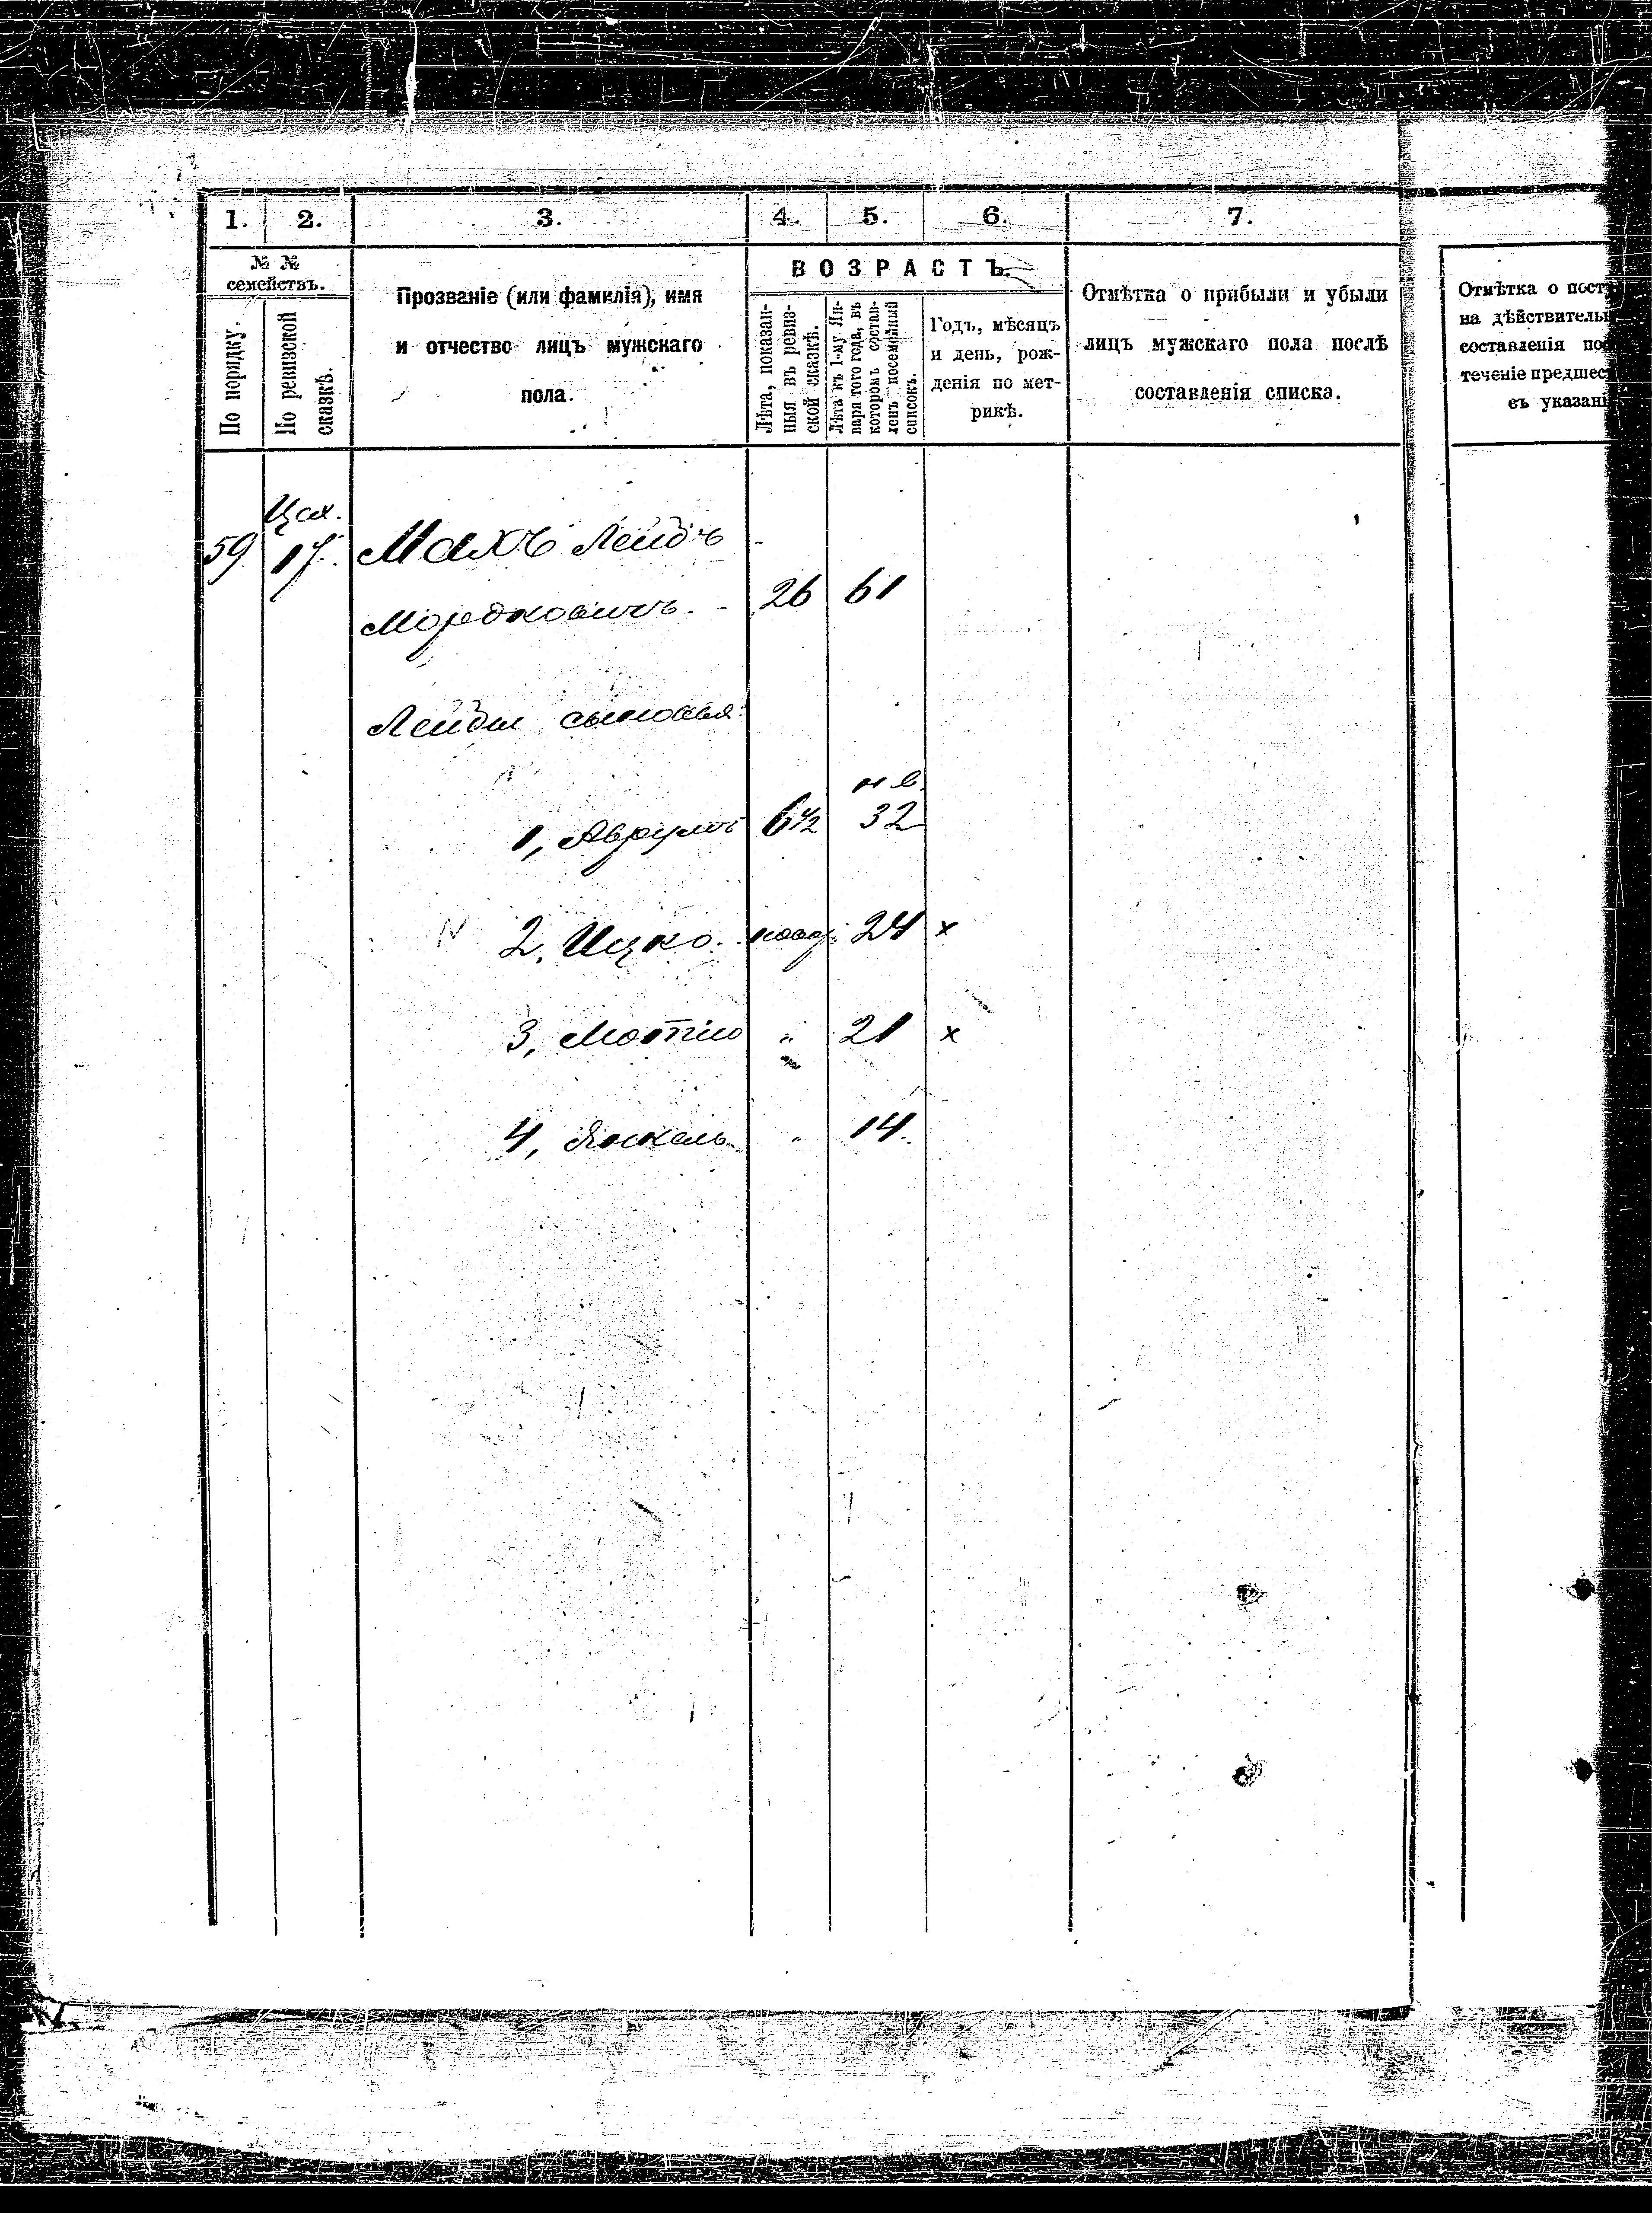 1. 2. 3. 4. 5. 6. 7.
№ №
семействъ.
По порядку.
По ревизской
сказкѣ.
Прозваніе (или фамилія), имя
и отчество лицъ мужскаго
пола.
ВОЗРАСТЪ.
Лѣта, показан-
ныя въ ревиз-
ской сказкѣ.
Лѣта къ 1-му Ян-
варя того года, въ
которомъ состав-
ленъ посемейный
списокъ.
Годъ, мѣсяцъ
и день, рож-
денія по мет-
рикѣ.
Отмѣтка о прибыли и убыли
лицъ мужскаго пола послѣ
составленія списка.
Отмѣтка о пост
на дѣйствитель
составленія по
теченіе предшес
съ указані
59 17. Махъ Лейбъ
Мордковичъ. 26 61
Лейбы сыновья:
1, Аврумъ 6½ 32
2, Ицко. 24 x
3, Мотіо " 21 x
4, Янкель " 14.